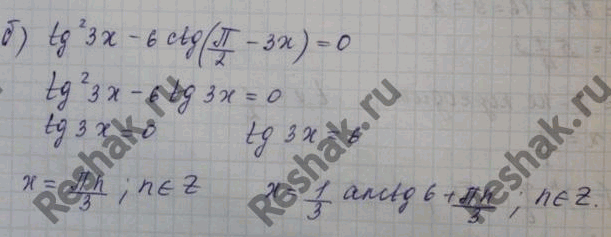 б) tg²3x - 6 ctg(π/2 - 3x) = 0
tg²3x - 6 tg 3x = 0
tg 3x = 0 tg 3x = 6
x = πn/3 ; n ∈ Z x = 1/3 arctg 6 + πn/3 ; n ∈ Z.
Reshak.ru
Reshak.ru
Reshak.ru
Reshak.ru